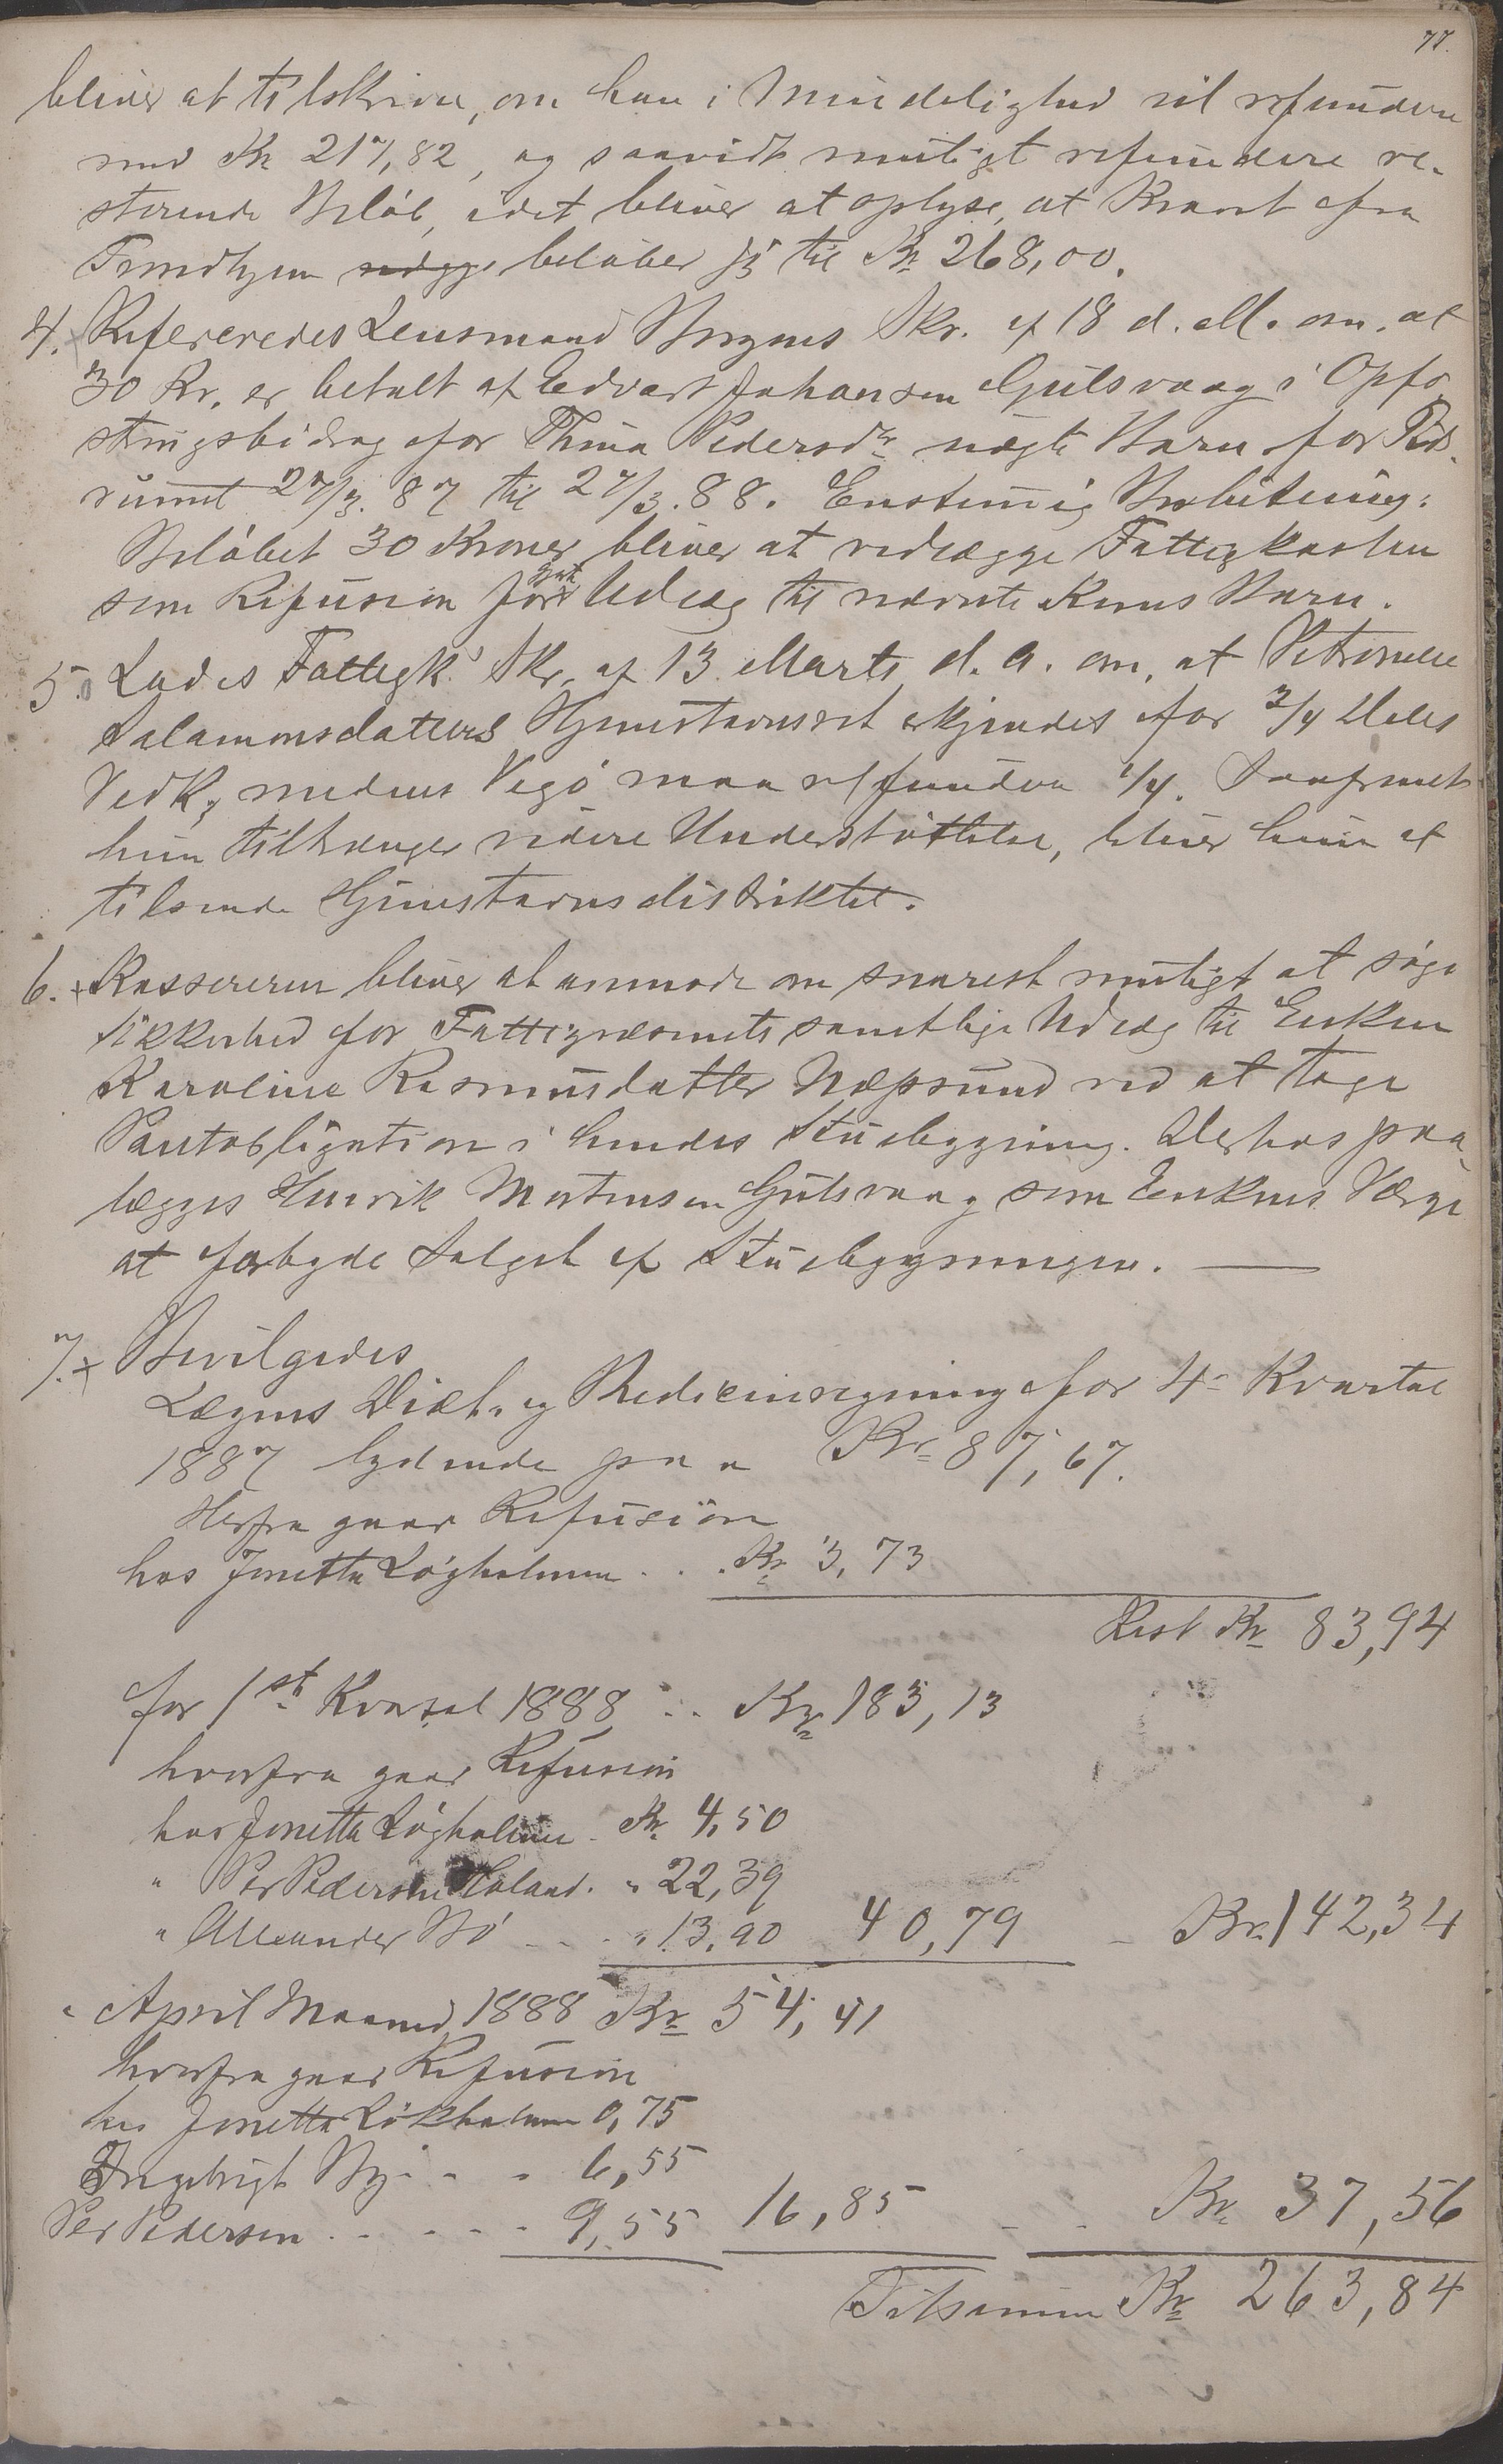 77.
bliver at tilskrive, om han i Mindelighed vil refundere
med Kr 217,82, og saavidt muligt refundere re-
sterende Beløb, idet bliver at oplyse, at Kravet fra
Trondhjem beløber sig til Kr 268,00.
4. Refereredes Lensmand Skr. af 18 d. M. om, at
30 Kr. er betalt af Edvart Johansen Gulsvaag i Opfo-
stringsbidrag for Thina Pedersdr uægte Barn for Tids-
rummet 27/3.87 til 27/3.88. Enstemmig Beslutning:
Beløbet 30 Kroner bliver at vedlægge Fattigkassen
som Refusion for gjort Udlæg til nævnte Barn.
5. Lades Fattigk. Skr. af 13 Marts d. A. om, at Petronelle
Salamonsdatters Hjemstavnsret erkjendes for 3/4 Deles
Vedk. medens Vegø maa refundere 1/4. Saafremt
hun tiltrænger videre Understøttelse, bliver hun at
tilsende Hjemstavnsdistriktet.
6. Kassereren bliver at anmode om snarest muligt at søge
Sikkerhed for Fattigvæsenets samtlige Udlæg til Enken
Karoline Rasmusdatter Næpsund ved at tage
Pantobligation i hendes Stuebygning. Derhos paa-
lægges Henrik Mortensen Gulsvaag som Enkens Værge
at forbyde Salget af Stuebygningen.
7. Bevilgedes
Lægens Diæt- og Medicinregning for 4de Kvartal
1887 lydende paa Kr 87,67.
Herfra gaar Refusion
hos Jonetta Løgholmen . . . Kr 3,73
Rest Kr 83,94
for 1ste Kvartal 1888 . . Kr 183,13
hvorfra gaar Refusion
hos Jonetta Løgholmen . Kr. 4,50
" Per Pedersen Haland . " 22,39
" Alexander Bø . . . " 13,90 40,79 - Kr 142,34
" April Maaned 1888 Kr 54,41
hvorfra gaar Refusion
hos Jonetta Løkholmen 0,75
Ingebrigt By . . . 6,55
Per Pedersen . . . . . 9,55 16,85 - - Kr 37,56
Tilsammen Kr 263,84